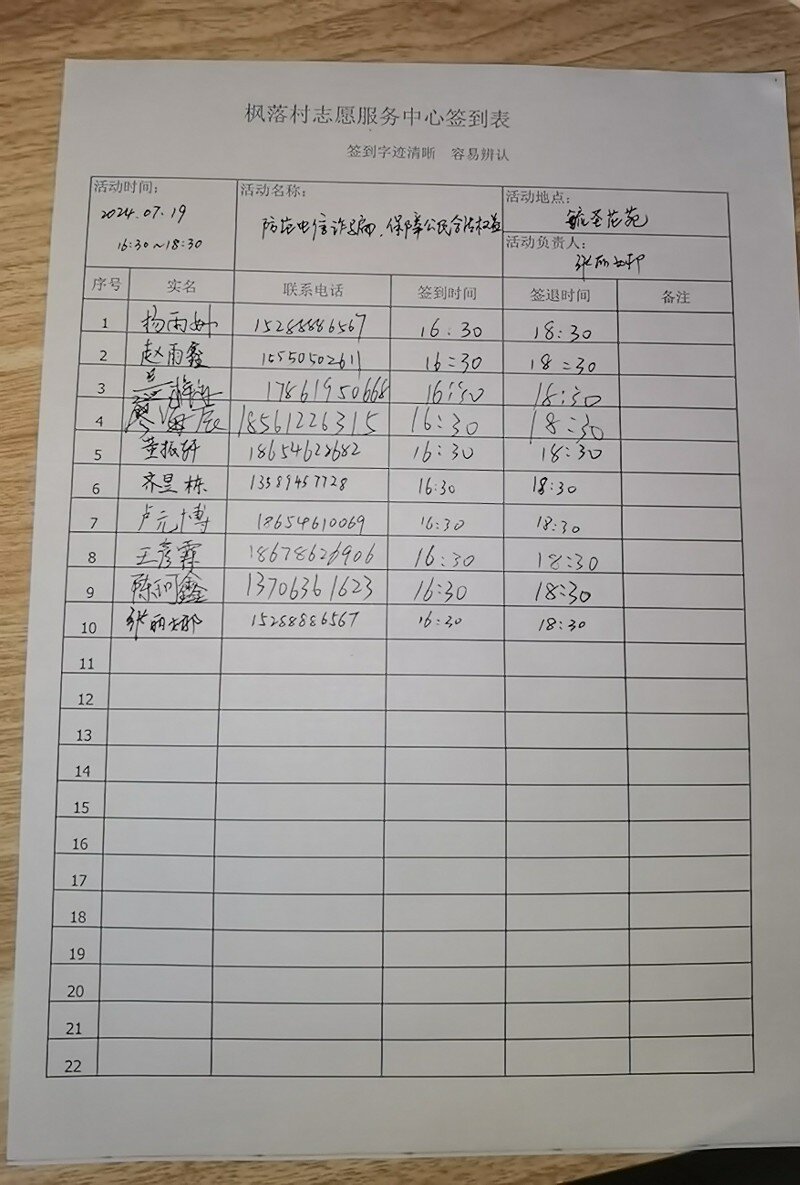 枫落村志愿服务中心签到表
签到字迹清晰 容易辨认
活动时间: 活动名称: 活动地点:
2024.07.19 防范电信诈骗,保障公民合法权益 毓圣花苑
16:30~18:30 活动负责人:
张丽娜
序号 实名 联系电话 签到时间 签退时间 备注
1 杨雨 15288886567 16:30 18:30
2 赵雨鑫 15550502611 16:30 18:30
3 17861950668 16:30 18:30
4 18561226315 16:30 18:30
5 董振轩 18654622682 16:30 18:30
6 齐昱栋 13589457728 16:30 18:30
7 卢元博 18654610069 16:30 18:30
8 王彦霖 18678626906 16:30 18:30
9 陈柯鑫 13706361623 16:30 18:30
10 张丽娜 15288886567 16:30 18:30
11
12
13
14
15
16
17
18
19
20
21
22